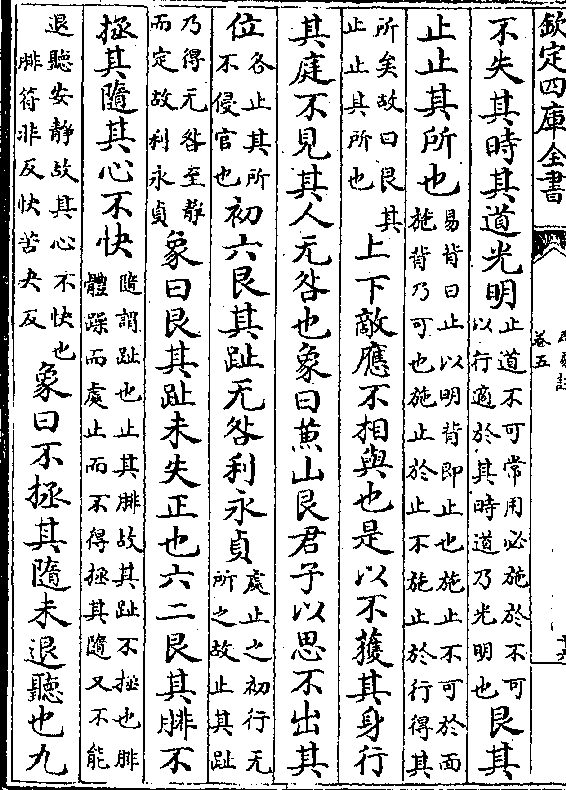 欽定四庫全書
卷五
不失其時其道光明止道不可常用必施於不可以行適於其時道乃光明也艮其
止止其所也易背曰止以明背即止也施止不可於面施背乃可也施止於止不施止於行得其
所矣故曰艮其止止其所也上下敵應不相與也是以不獲其身行
其庭不見其人无咎也象曰兼山艮君子以思不出其
位各止其所不侵官也初六艮其趾无咎利永貞處止之初行无所之故止其趾
乃得无咎至静而定故利永貞象曰艮其趾未失正也六二艮其腓不
拯其隨其心不快隨謂趾也止其腓故其趾不拯也腓體躁而處止而不得拯其隨又不能
退聽安静故其心不快也腓符非反快苦夬反象曰不拯其隨未退聽也九